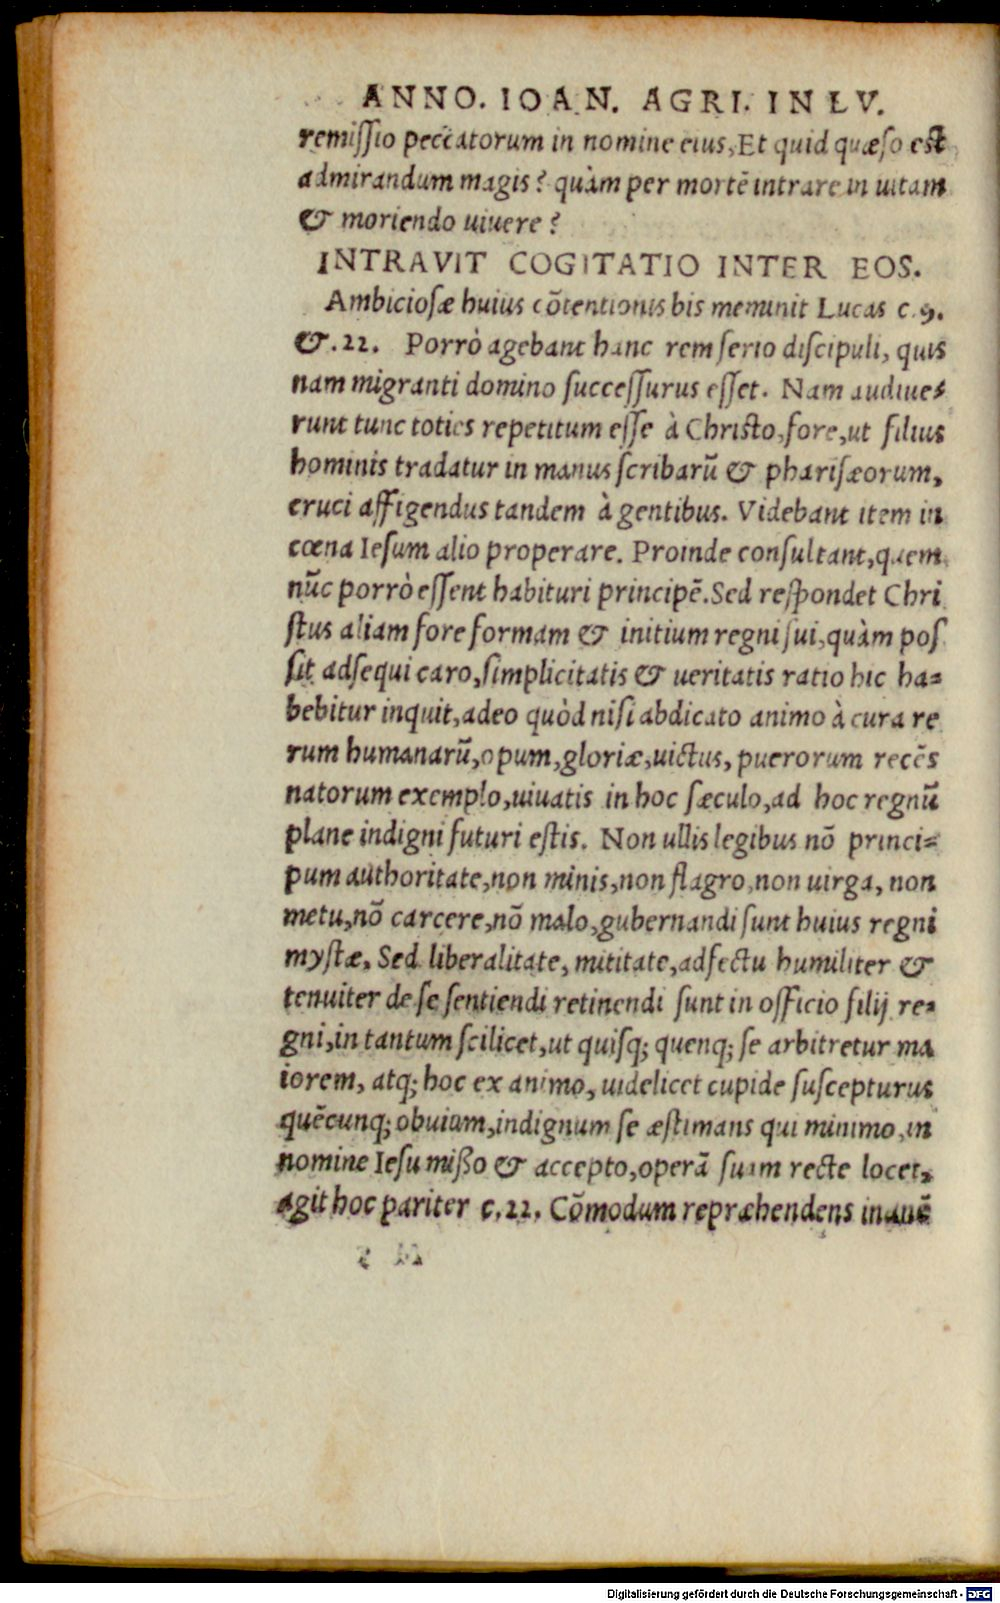 ANNO. IOAN. AGRI. IN LV.
remissio peccatorum in nomine eius, Et quid quæso est
admirandum magis? quàm per mortē intrare in uitam
& moriendo uiuere?
INTRAVIT COGITATIO INTER EOS.
Ambiciosæ huius cōtentionis bis meminit Lucas c.9.
&.22. Porrò agebant hanc rem serio discipuli, quis
nam migranti domino successurus esset. Nam audiue-
runt tunc toties repetitum esse à Christo, fore, ut filius
hominis tradatur in manus scribarū & pharisæorum,
cruci affigendus tandem à gentibus. Videbant item in
cœna Iesum alio properare. Proinde consultant, quem
nūc porrò essent habituri principē. Sed respondet Chri
stus aliam fore formam & initium regni sui, quàm pos
sit adsequi caro, simplicitatis & ueritatis ratio hic ha=
bebitur inquit, adeo quòd nisi abdicato animo à cura re
rum humanarū, opum, gloriæ, uictus, puerorum recēs
natorum exemplo, uiuatis in hoc sæculo, ad hoc regnū
plane indigni futuri estis. Non ullis legibus nō princi=
pum authoritate, non minis, non flagro, non uirga, non
metu, nō carcere, nō malo, gubernandi sunt huius regni
mystæ. Sed liberalitate, mititate, adfectu humiliter &
tenuiter de se sentiendi retinendi sunt in officio filij re=
gni, in tantum scilicet, ut quisq; quenq; se arbitretur ma
iorem, atq; hoc ex animo, uidelicet cupide suscepturus
quēcunq; obuium, indignum se æstimans qui minimo, in
nomine Iesu misso & accepto, operā suam recte locet,
agit hoc pariter c.22. Cōmodum repræhendens inauē
Digitalisierung gefördert durch die Deutsche Forschungsgemeinschaft - DFG